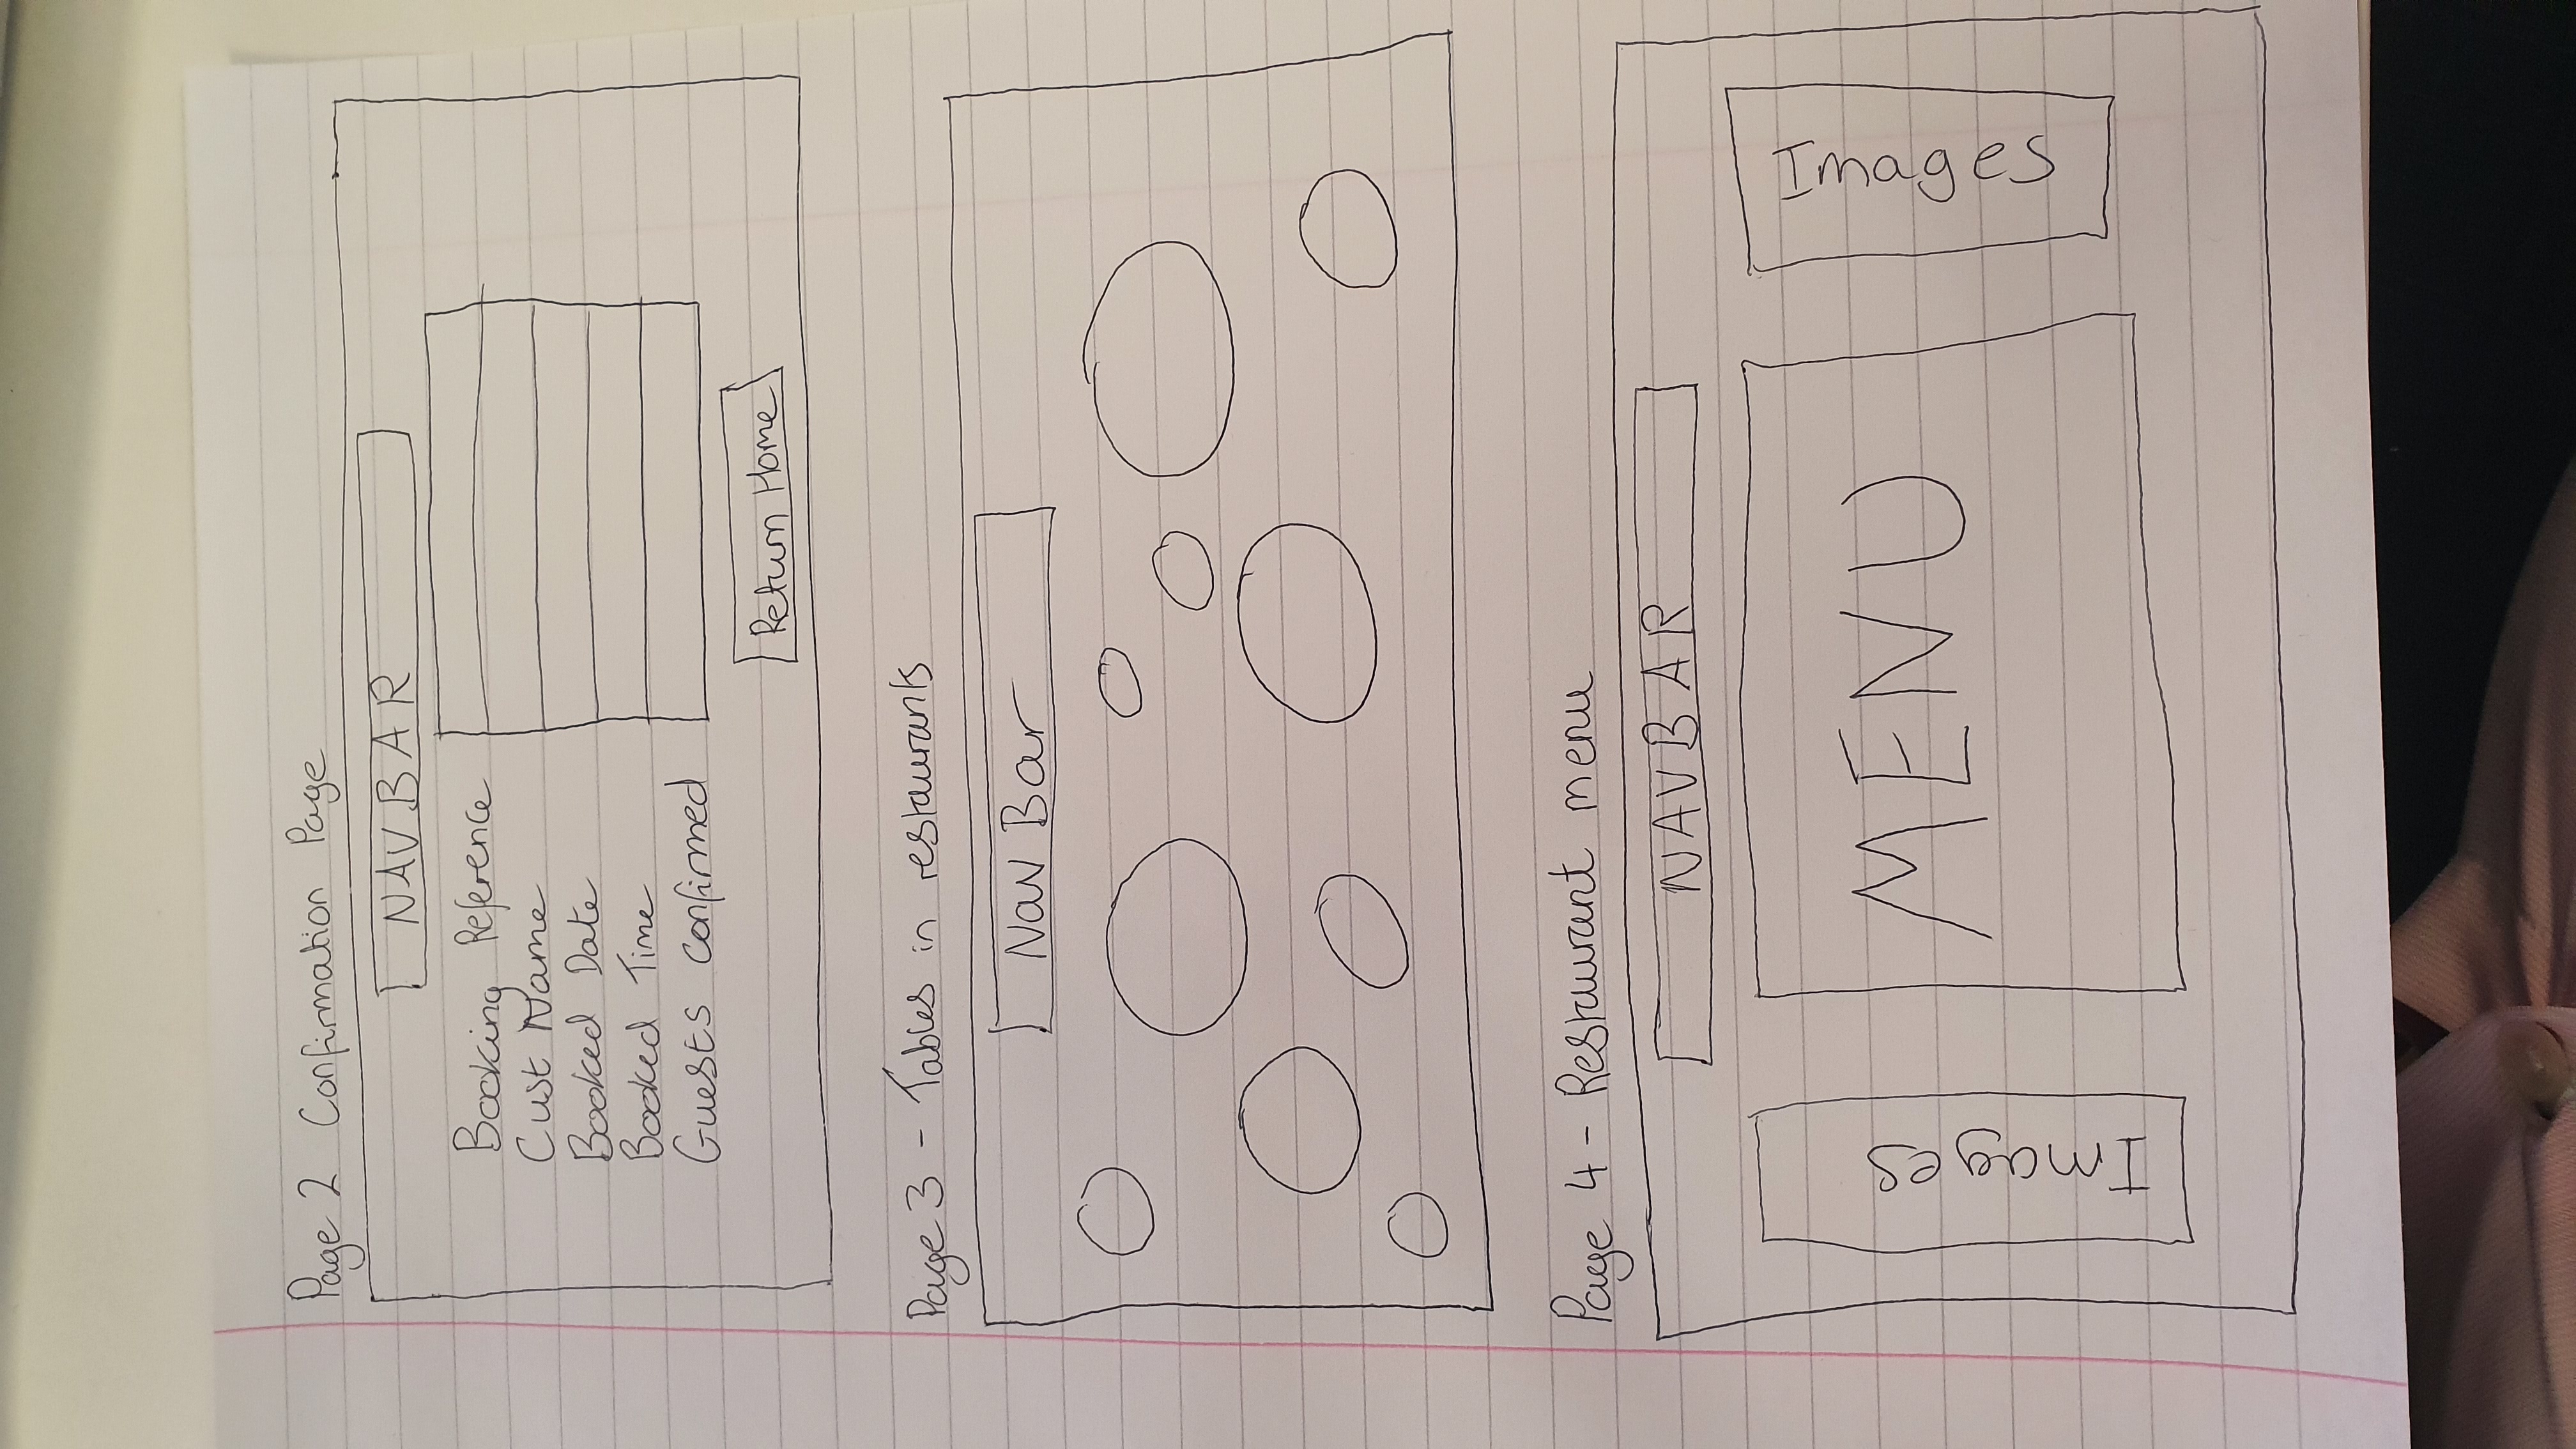 Page 2 Confirmation Page
NAV BAR
Booking Reference
Cust Name
Booked Date
Booked Time
Guests confirmed
Return Home
Page 3 - Tables in restaurants
Nav Bar
Page 4 - Restaurant menu
NAVBAR
Images
MENU
Images